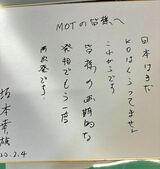 MOTの皆様へ
日本はまだ
KOはくらってません
これからです
皆様の画期的な
発想でもう一度
再出発です。
坂本幸雄
20.2.4